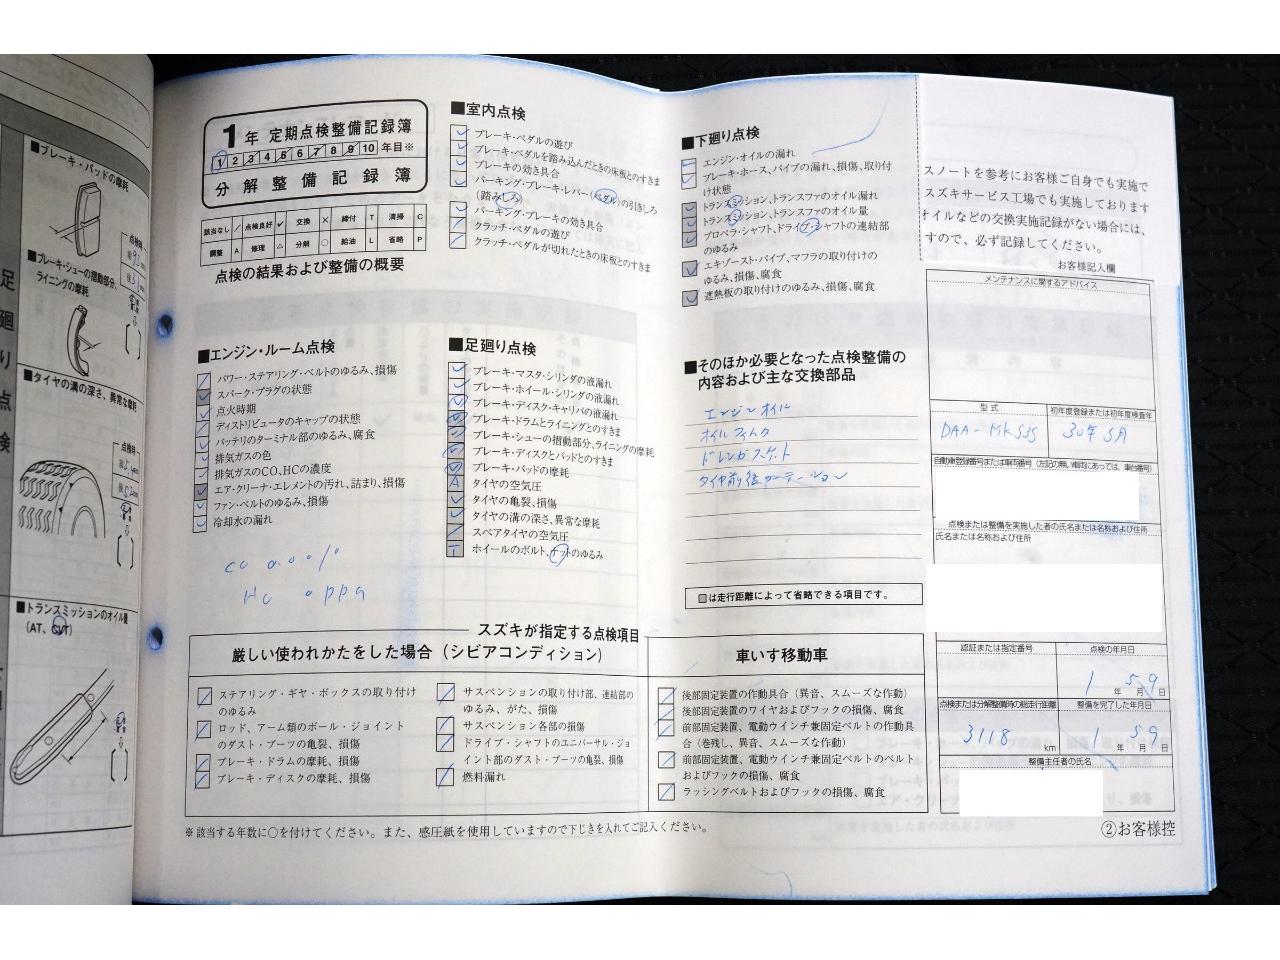 ■ブレーキ・パッドの摩耗
■ブレーキ・シューの摺動部分、
ライニングの摩耗
■タイヤの溝の深さ、異常な摩耗
■トランスミッションのオイル量
(AT、CVT)
足廻り点検
1年 定期点検整備記録簿
1 2 3 4 5 6 7 8 9 10 年目※
分解整備記録簿
該当なし / 点検良好 レ 交換 × 締付 T 清掃 C
調整 A 修理 △ 分解 ○ 給油 L 省略 P
点検の結果および整備の概要
■エンジン・ルーム点検
パワー・ステアリング・ベルトのゆるみ、損傷
スパーク・プラグの状態
点火時期
ディストリビュータのキャップの状態
バッテリのターミナル部のゆるみ、腐食
排気ガスの色
排気ガスのCO、HCの濃度
エア・クリーナ・エレメントの汚れ、詰まり、損傷
ファン・ベルトのゆるみ、損傷
冷却水の漏れ
CO 0.0 %
HC 0 ppm
■室内点検
ブレーキ・ペダルの遊び
ブレーキ・ペダルを踏み込んだときの床板とのすきま
ブレーキの効き具合
パーキング・ブレーキ・レバー(ペダル)の引きしろ
(踏みしろ)
パーキング・ブレーキの効き具合
クラッチ・ペダルの遊び
クラッチ・ペダルが切れたときの床板とのすきま
■足廻り点検
ブレーキ・マスタ・シリンダの液漏れ
ブレーキ・ホイール・シリンダの液漏れ
ブレーキ・ディスク・キャリパの液漏れ
ブレーキ・ドラムとライニングとのすきま
ブレーキ・シューの摺動部分、ライニングの摩耗
ブレーキ・ディスクとパッドとのすきま
ブレーキ・パッドの摩耗
A タイヤの空気圧
タイヤの亀裂、損傷
タイヤの溝の深さ、異常な摩耗
スペアタイヤの空気圧
T ホイールのボルト、ナットのゆるみ
■下廻り点検
エンジン・オイルの漏れ
ブレーキ・ホース、パイプの漏れ、損傷、取り付
け状態
トランスミッション、トランスファのオイル漏れ
トランスミッション、トランスファのオイル量
プロペラ・シャフト、ドライブ・シャフトの連結部
のゆるみ
エキゾースト・パイプ、マフラの取り付けの
ゆるみ、損傷、腐食
遮熱板の取り付けのゆるみ、損傷、腐食
■そのほか必要となった点検整備の
内容および主な交換部品
エンジンオイル
オイルフィルタ
ドレンガスケット
タイヤ前後ローテーション
□は走行距離によって省略できる項目です。
スズキが指定する点検項目
厳しい使われかたをした場合(シビアコンディション)
ステアリング・ギヤ・ボックスの取り付け
のゆるみ
ロッド、アーム類のボール・ジョイント
のダスト・ブーツの亀裂、損傷
ブレーキ・ドラムの摩耗、損傷
ブレーキ・ディスクの摩耗、損傷
サスペンションの取り付け部、連結部の
ゆるみ、がた、損傷
サスペンション各部の損傷
ドライブ・シャフトのユニバーサル・ジョ
イント部のダスト・ブーツの亀裂、損傷
燃料漏れ
車いす移動車
後部固定装置の作動具合(異音、スムーズな作動)
後部固定装置のワイヤおよびフックの損傷、腐食
前部固定装置、電動ウインチ兼固定ベルトの作動具
合(巻残し、異音、スムーズな作動)
前部固定装置、電動ウインチ兼固定ベルトのベルト
およびフックの損傷、腐食
ラッシングベルトおよびフックの損傷、腐食
※該当する年数に○を付けてください。また、感圧紙を使用していますので下じきを入れてご記入ください。
スノートを参考にお客様ご自身でも実施で
スズキサービス工場でも実施しております
オイルなどの交換実施記録がない場合には、
すので、必ず記録してください。
お客様記入欄
メンテナンスに関するアドバイス
型式 初年度登録または初年度検査年
DAA-MK53S 30年5月
自動車登録番号または車両番号(左記の無い車両にあっては、車台番号)
点検または整備を実施した者の氏名または名称および住所
氏名または名称および住所
認証または指定番号 点検の年月日
1年 5月 9日
点検または分解整備時の総走行距離 整備を完了した年月日
3118 km 1年 5月 9日
整備主任者の氏名
②お客様控